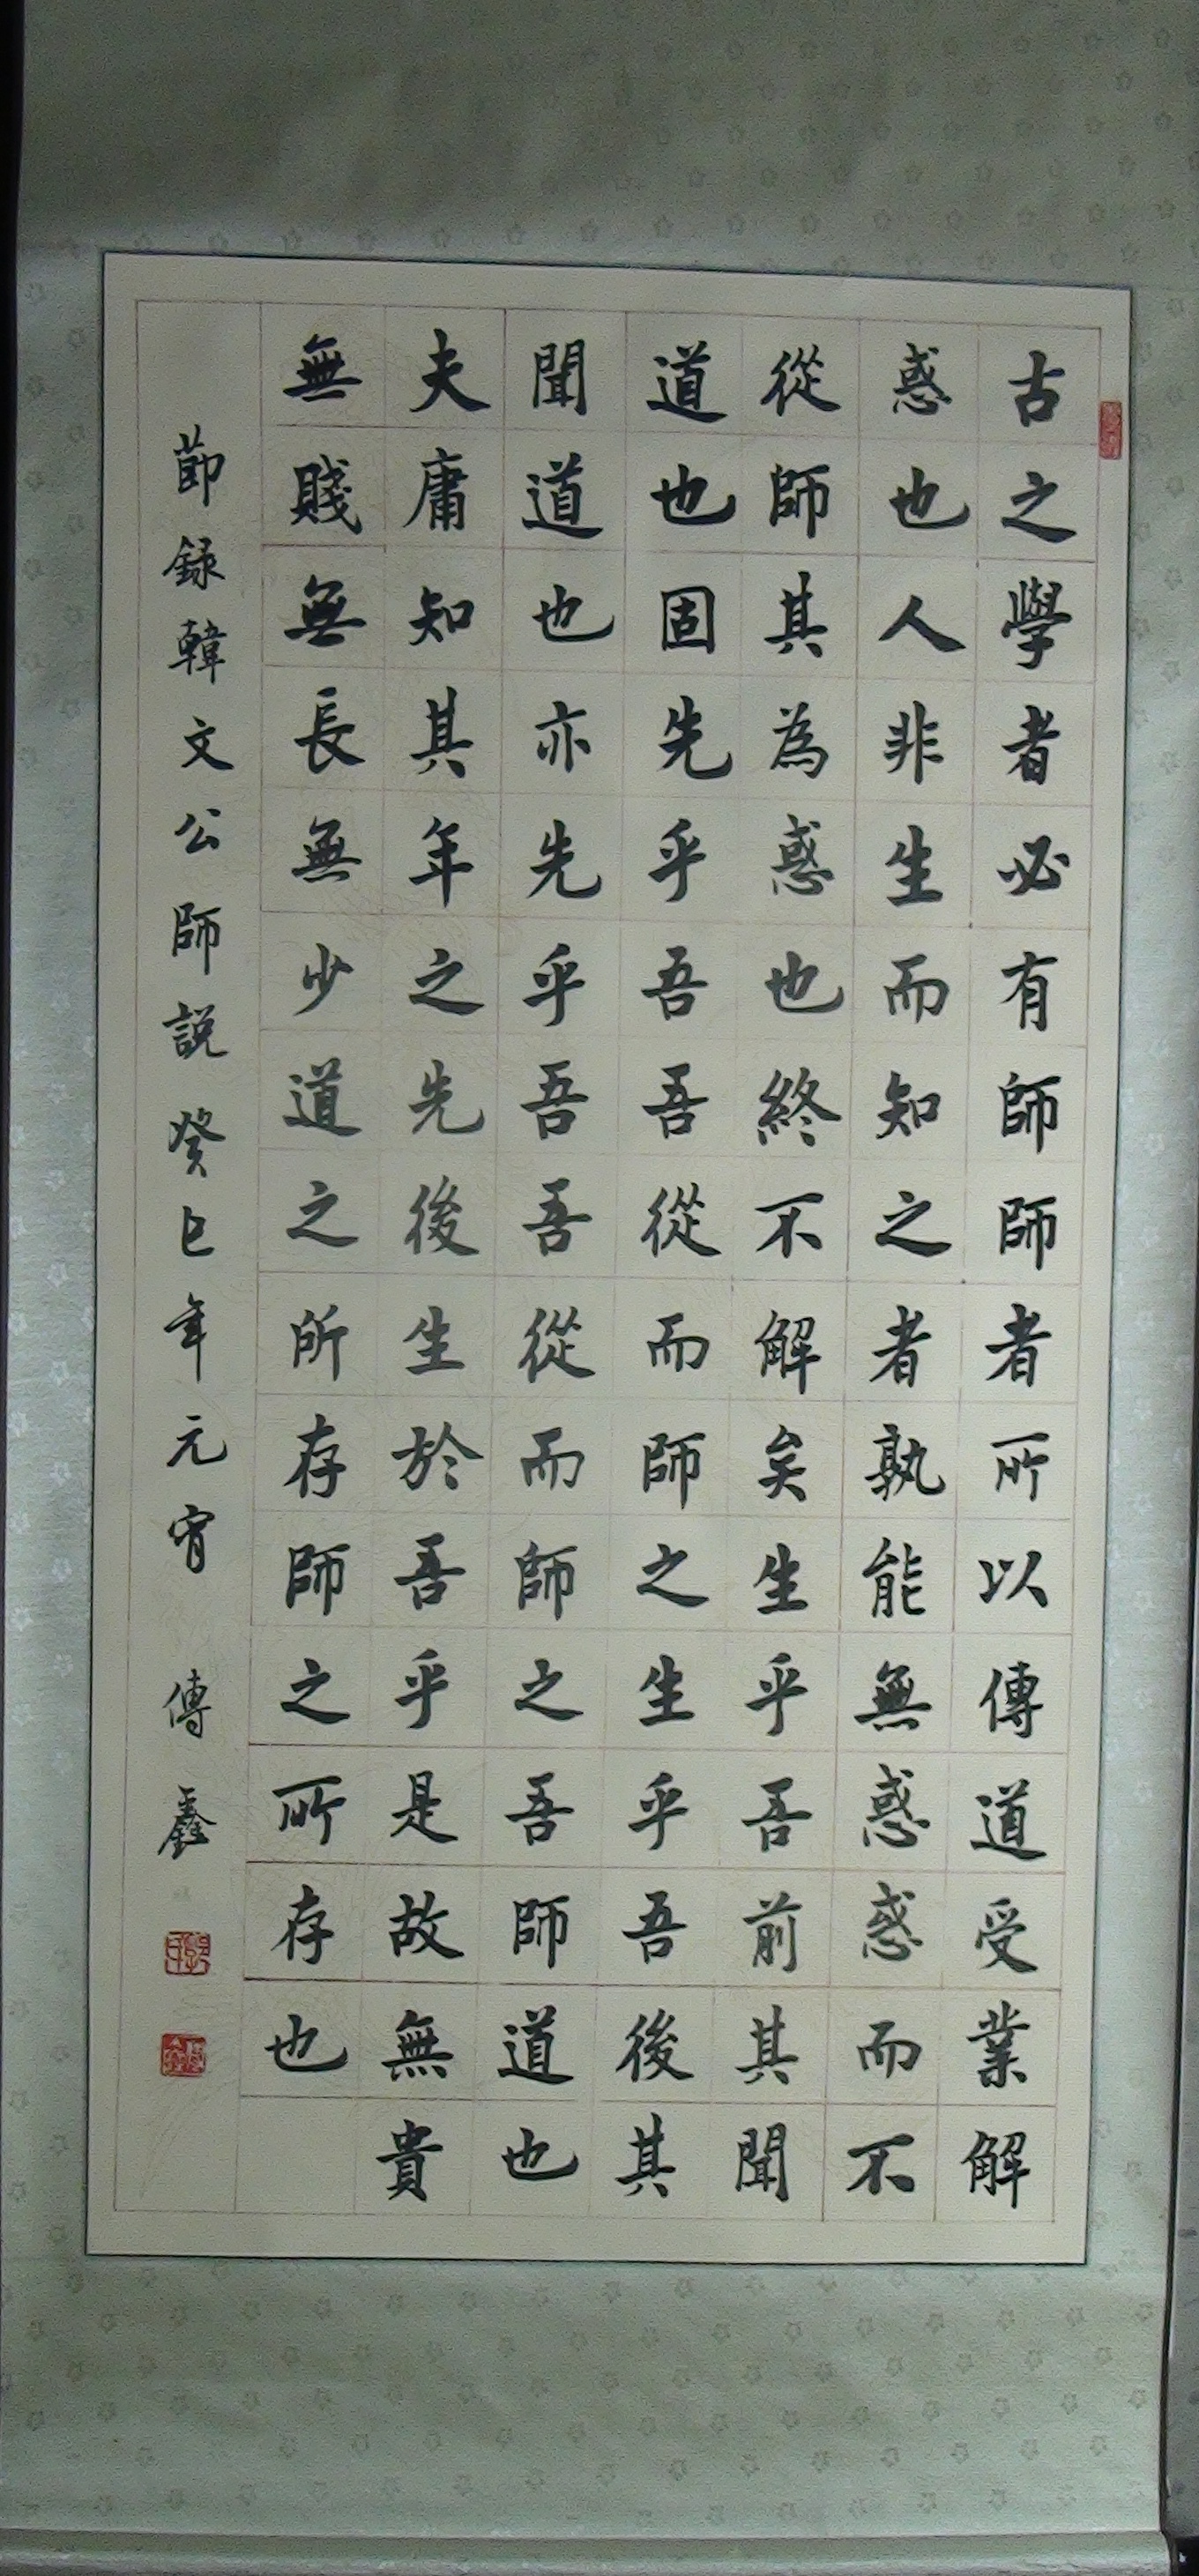 古之學者必有師師者所以傳道受業解
惑也人非生而知之者孰能無惑惑而不
從師其為惑也終不解矣生乎吾前其聞
道也固先乎吾吾從而師之生乎吾後其
聞道也亦先乎吾吾從而師之吾師道也
夫庸知其年之先後生於吾乎是故無貴
無賤無長無少道之所存師之所存也
節録韓文公師説癸巳年元宵 傳鑫